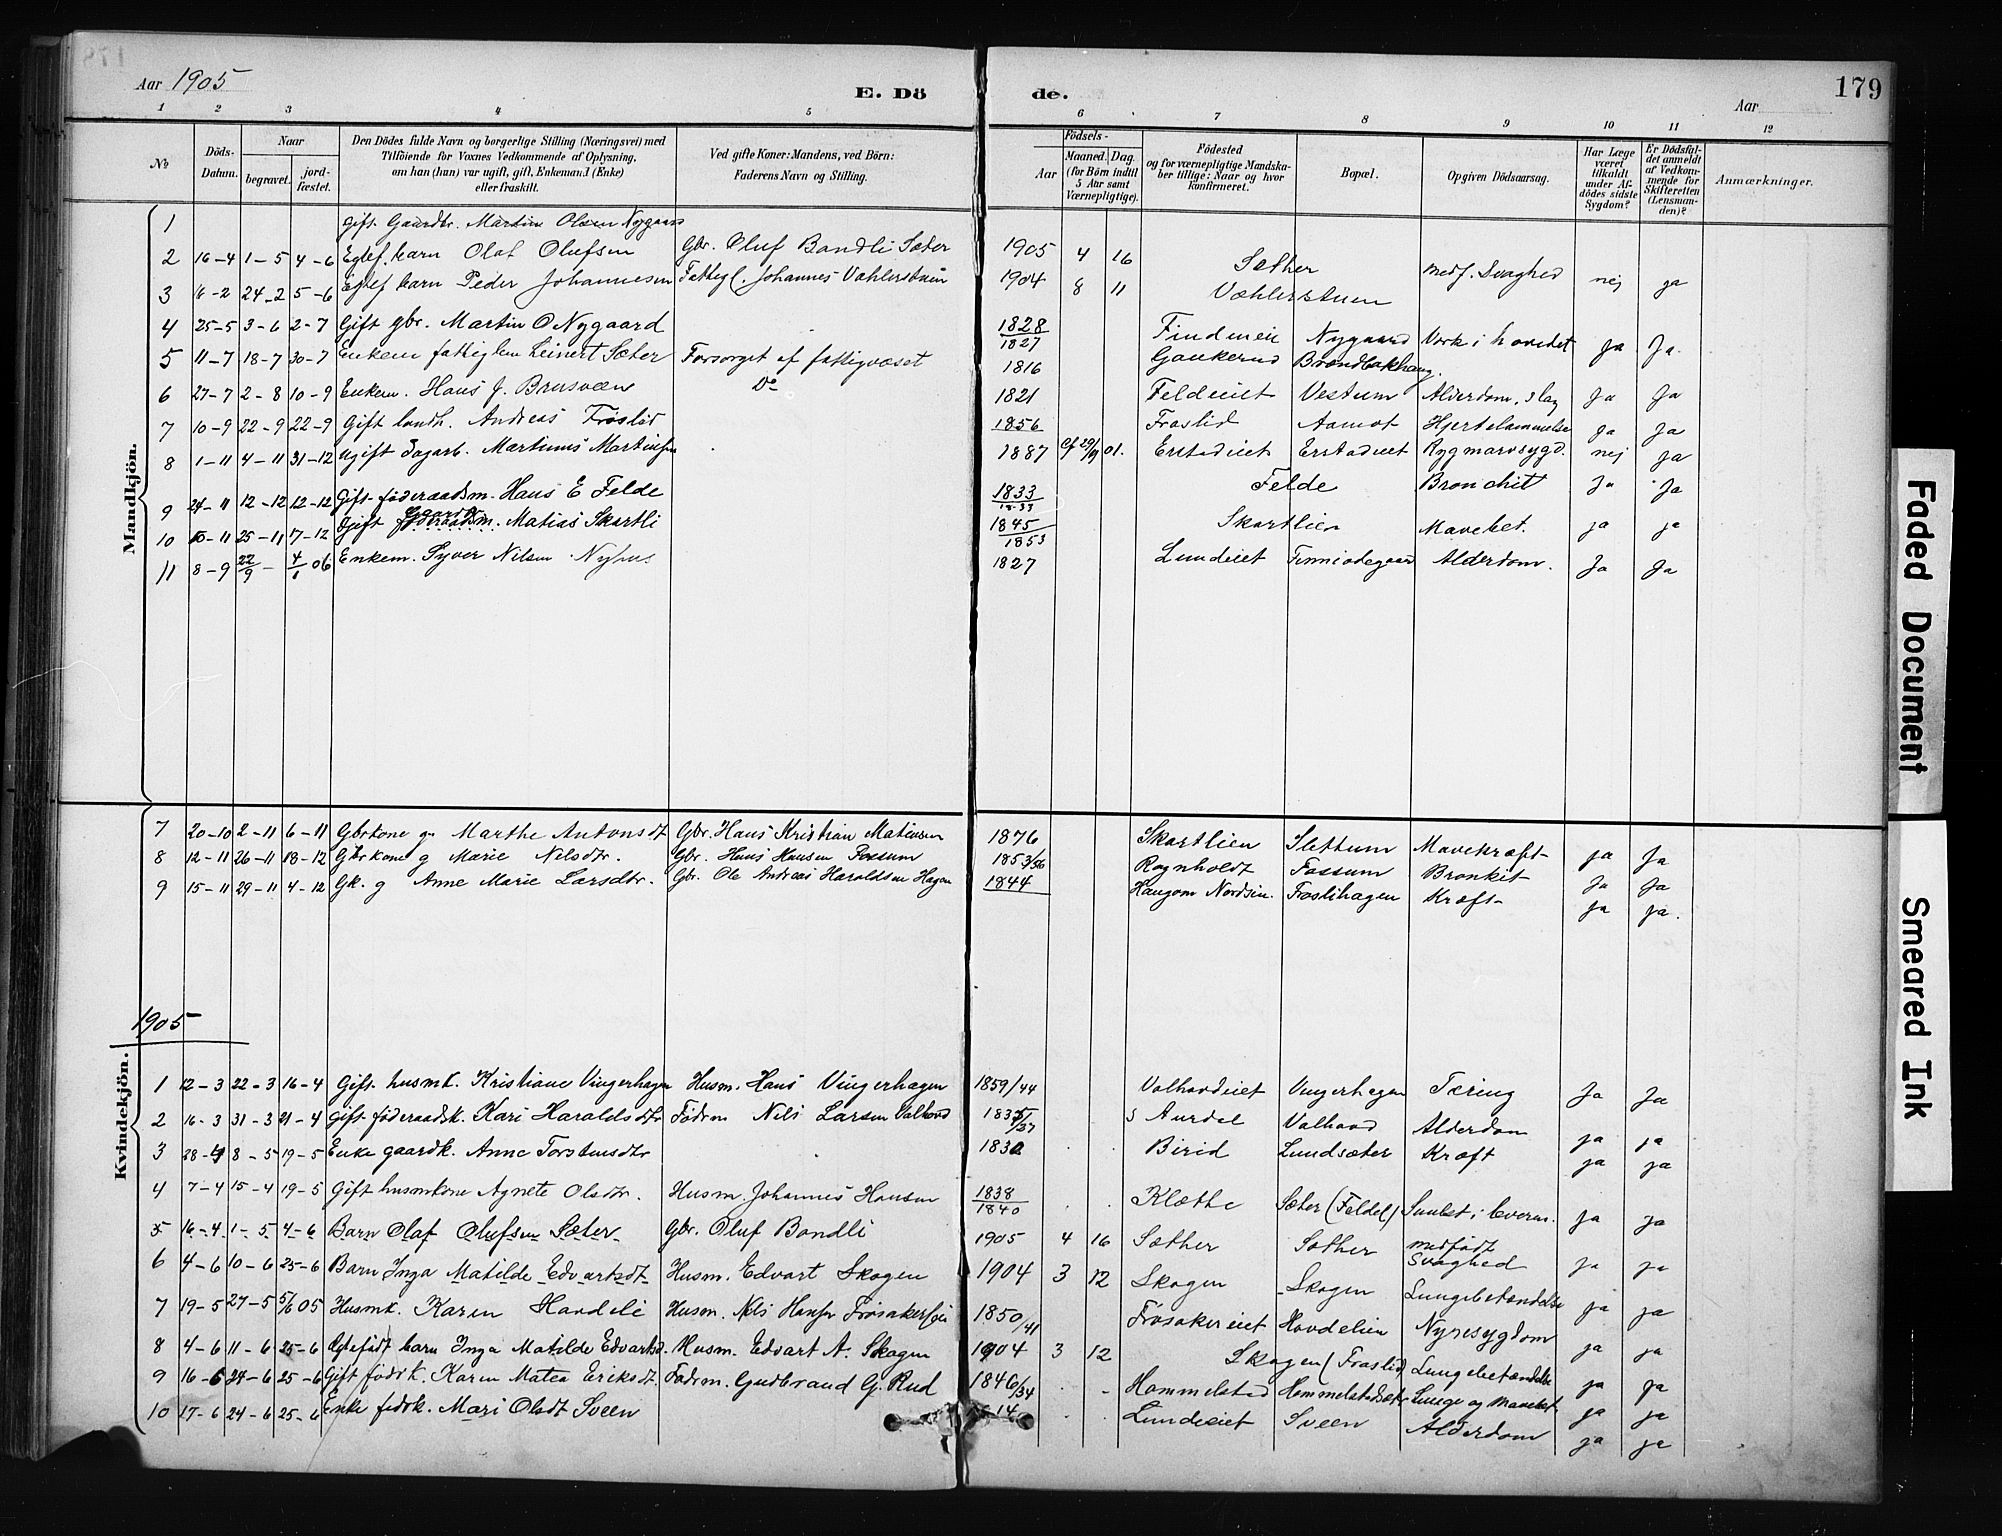 Aar 1905
E. Döde.
Aar
179
1 2 3 4 5 6 7 8 9 10 11 12
No
Döds-Datum.
Naar
begravet.
jord-fæstet.
Den Dödes fulde Navn og borgerlige Stilling (Næringsvei) med
Tilföiende for Voxnes Vedkommende af Oplysning,
om han (hun) var ugift, gift, Enkemand (Enke)
eller fraskilt.
Ved gifte Koner: Mandens, ved Börn:
Faderens Navn og Stilling.
Födsels-
Aar
Maaned. Dag.
(for Börn indtil
5 Aar samt
Værnepligtige).
Födested
og for værnepligtige Mandska-
ber tillige: Naar og hvor
konfirmeret.
Bopæl.
Opgiven Dödsaarsag.
Har Læge
været
tilkaldt
under Af-
dödes sidste
Sygdom?
Er Dödsfal-
det anmeldt
af Vedkom-
mende for
Skifteretten
(Lensman-
den)?
Anmærkninger.
Mandkjön.
1 Gift Gaardbr. Martin Olsen Nygaard
2 16-4 1-5 4-6 Egtef. barn Olaf Olufsen Gbr. Oluf Bondli Sæter 1905 4 16 Sæther medf. Svaghed nej ja
3 16-2 24-2 5-6 Egtef barn Peder Johannesen Fattigl. Johannes Vahlerstuen 1904 8 11 Væhlerstuen
4 25-5 3-6 2-7 Gift gbr. Martin O Nygaard 1828/1827 Nygaard Værk i hovedet ja Ja.
5 11-7 18-7 30-7 Enkem fattiglem Leinert Sæter Forsørget af fattigvæset 1816 Gaukerud Brandbakhaug.
6 27-7 2-8 10-9 Enkem. Hans J. Brusveen Do 1821 Feldeiet Vestum Alderdom, slag Ja Ja
7 10-9 22-9 22-9 Gift landh. Andreas Frøslid 1856 Froslid Aamot Hjertelammelse ja Ja
8 1-11 4-11 31-12 Ugift dagarb. Martinus Martinsen 1887 Cf 29/9 01. Erstadeiet Erstadeiet Rygmarvsygd. nej ja
9 24-11 12-12 12-12 Gift føderaadsm. Hans E Felde 1833/1833 Felde Bronchit Ja Ja
10 10-11 25-11 17-12 Gift føderaadsm. Gaardbr Matias Skartli 1845/1853 Skartlien Mavekat. ja ja
11 8-9 22/9 - 4/1 06 Enkem. Syver Nilsen Nyhus 1827 Lundeiet Finniodegaard Alderdom. Ja Ja
7 20-10 2-11 6-11 Gbrkone g. Marthe Antonsdt Gbr. Hans Kristian Matiasen 1876 Skartlien Slettum Mavekræft- ja Ja
8 12-11 26-11 18-12 Gbrkone g Marie Nelsdtr. Gbr. Hans Hansen Fossum 1853/56 Rognholdt Fossum Bronket Ja Ja
9 15-11 29-11 4-12 Gk. g Anne Marie Larsdtr. Gbr. Ole Andreas Haroldsen Hagen 1844 Haugom Nordsin. Froslihagen Kræft- ja ja.
1905
Kvindekjön.
1 12-3 22-3 16-4 Gift husmk. Kristiane Vingerhagen Husm. Hans Vingerhagen 1859/44 Valhovdeiet Vingerhagen Tæring Ja Ja
2 16-3 31-3 21-4 Gift føderaadsk. Kari Haraldsdtr Fødrm Nils Larsen Valhovd 1835/37 S Aurdal Valhovd Alderdom ja ja
3 28-4 8-5 19-5 Enke gaardk. Anne Torstensdtr 1832 Birid Lundsæter Kræft ja ja
4 7-4 15-4 19-5 Gift husmkone Agnete Olsdtr. Husm. Johannes Hansen 1838/1840 Klæthe Sæter (Feldel) ja ja
5 16-4 1-5 4-6 Barn Olaf Olufsen Sæter Gbr. Oluf Bondli 1905 4 16 Sæther Sæther medfødt Svaghed ja ja
6 4-6 10-6 25-6 Barn Inga Matilde Edvartsdt- Husm. Edvart Skogen 1904 3 12 Skogen Skogen Lungebetændelse ja ja
7 19-5 27-5 5/6 05 Husmk. Karen Hovdeli Husm. Nils Hansen Frøsakereie 1850/41 Frøsakereiet Hovdelien Nyresygdom ja ja
8 4-6 11-6 25-6 Egtefødt barn Inga Matilde Edvartsd. Husm. Edvart A. Skogen 1904 3 12 Skogen (Froslid) Lungebetændelse ja ja
9 16-6 24-6 25-6 Gift fødrk. Karen Matea Eriksdt. Fødrm. Gudbrand G. Rud 1846/34 Hommelstad Hommelstadsæter Lunge og mavekat. ja ja
10 17-6 24-6 25-6 Enke fødrk. Mari Olsdt Sveen 14 Lundeeiet Sveen Alderdom ja ja
Faded Document
Smeared Ink